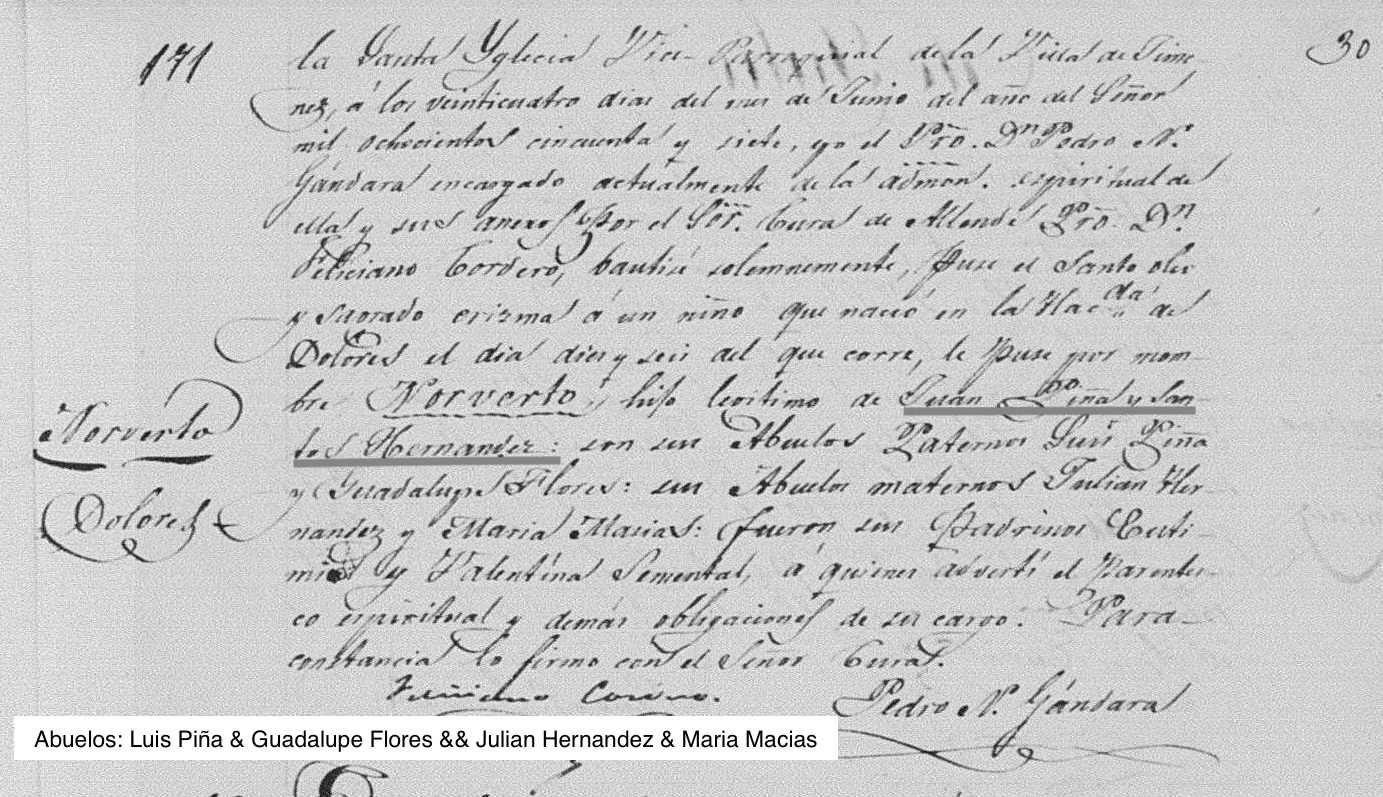 171
30
la Santa Yglecia Vice-Parroquial de la Villa de Jime-
nez, á los veinticuatro dias del mes de Junio del año del Señor
mil ochocientos cincuenta y siete, yo el Pro. Dn Pedro N.
Gándara encargado actualmente de la admon. espiritual de
ella y sus anexos por el Sor. Cura de Allende Pro. Dn.
Feliciano Cordero, bautisé solemnemente, puse el Santo oleo
y sagrado crizma á un niño que nació en la Hacda de
Dolores el dia diez y seis del que corre, le puse por nom-
bre Norverto, hijo legitimo de Juan Piña y San-
tos Hernandez: son sus Abuelos Paternos Luis Piña
y Guadalupe Flores: sus Abuelos maternos Julian Her-
nandez y Maria Macias: fueron sus Padrinos Euti-
y Valentina Semental, á quienes advertí el Parentes-
co espiritual y demás obligaciones de su cargo. Para
constancia lo firmo con el Señor Cura.
Norverto
Dolores
Feliciano Cordero.
Pedro N. Gándara
Abuelos: Luis Piña & Guadalupe Flores && Julian Hernandez & Maria Macias